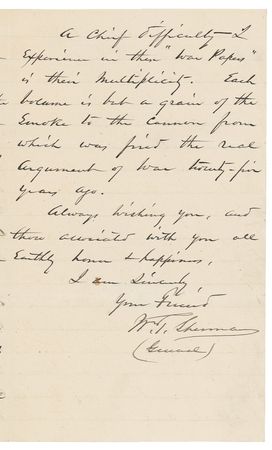 A Chief difficulty I
Experience in these "War Papers"
is their Multiplicity. Each
volume is but a grain of the
Smoke to the Cannon from
which was fired the real
Argument of War twenty-five
years ago.
Always wishing you, and
those associated with you all
Earthly honor & happiness,
I am Sincerely
Your Friend
W. T. Sherman
(General)